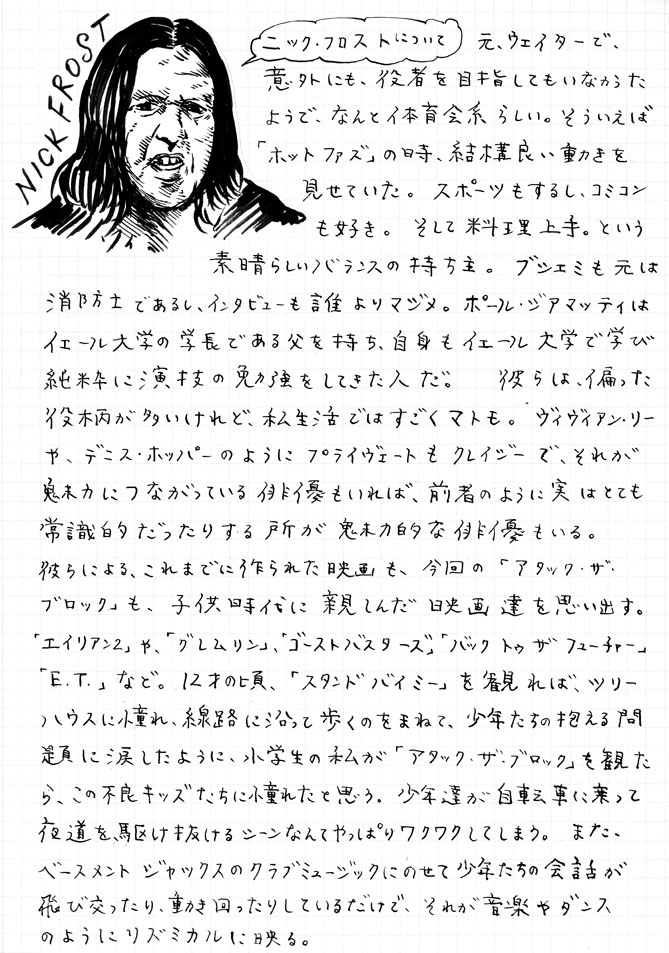 NICK FROST
ニック・フロストについて
元、ウェイターで、
意外にも、役者を目指してもいなかった
ようで、なんと体育会系らしい。そういえば
「ホットファズ」の時、結構良い動きを
見せていた。スポーツもするし、コミコン
も好き。そして料理上手。という
素晴らしいバランスの持ち主。ブシェミも元は
消防士であるし、インタビューも誰よりマジメ。ポール・ジアマッティは
イェール大学の学長である父を持ち、自身もイェール大学で学び
純粋に演技の勉強をしてきた人だ。 彼らは、偏った
役柄が多いけれど、私生活ではすごくマトモ。ヴィヴィアン・リー
や、デニス・ホッパーのようにプライヴェートもクレイジーで、それが
魅力につながっている俳優もいれば、前者のように実はとても
常識的だったりする所が魅力的な俳優もいる。
彼らによる、これまでに作られた映画も、今回の「アタック・ザ・
ブロック」も、子供時代に親しんだ映画達を思い出す。
「エイリアン2」や、「グレムリン」、「ゴーストバスターズ」、「バックトゥザフューチャー」
「E.T.」など。12才の頃、「スタンドバイミー」を観れば、ツリー
ハウスに憧れ、線路に沿って歩くのをまねて、少年たちの抱える問
題に涙したように、小学生の私が「アタック・ザ・ブロック」を観た
ら、この不良キッズたちに憧れたと思う。少年達が自転車に乗って
夜道を駆け抜けるシーンなんてやっぱりワクワクしてしまう。また、
ベースメントジャックスのクラブミュージックにのせて少年たちの会話が
飛び交ったり、動き回ったりしているだけで、それが音楽やダンス
のようにリズミカルに映る。